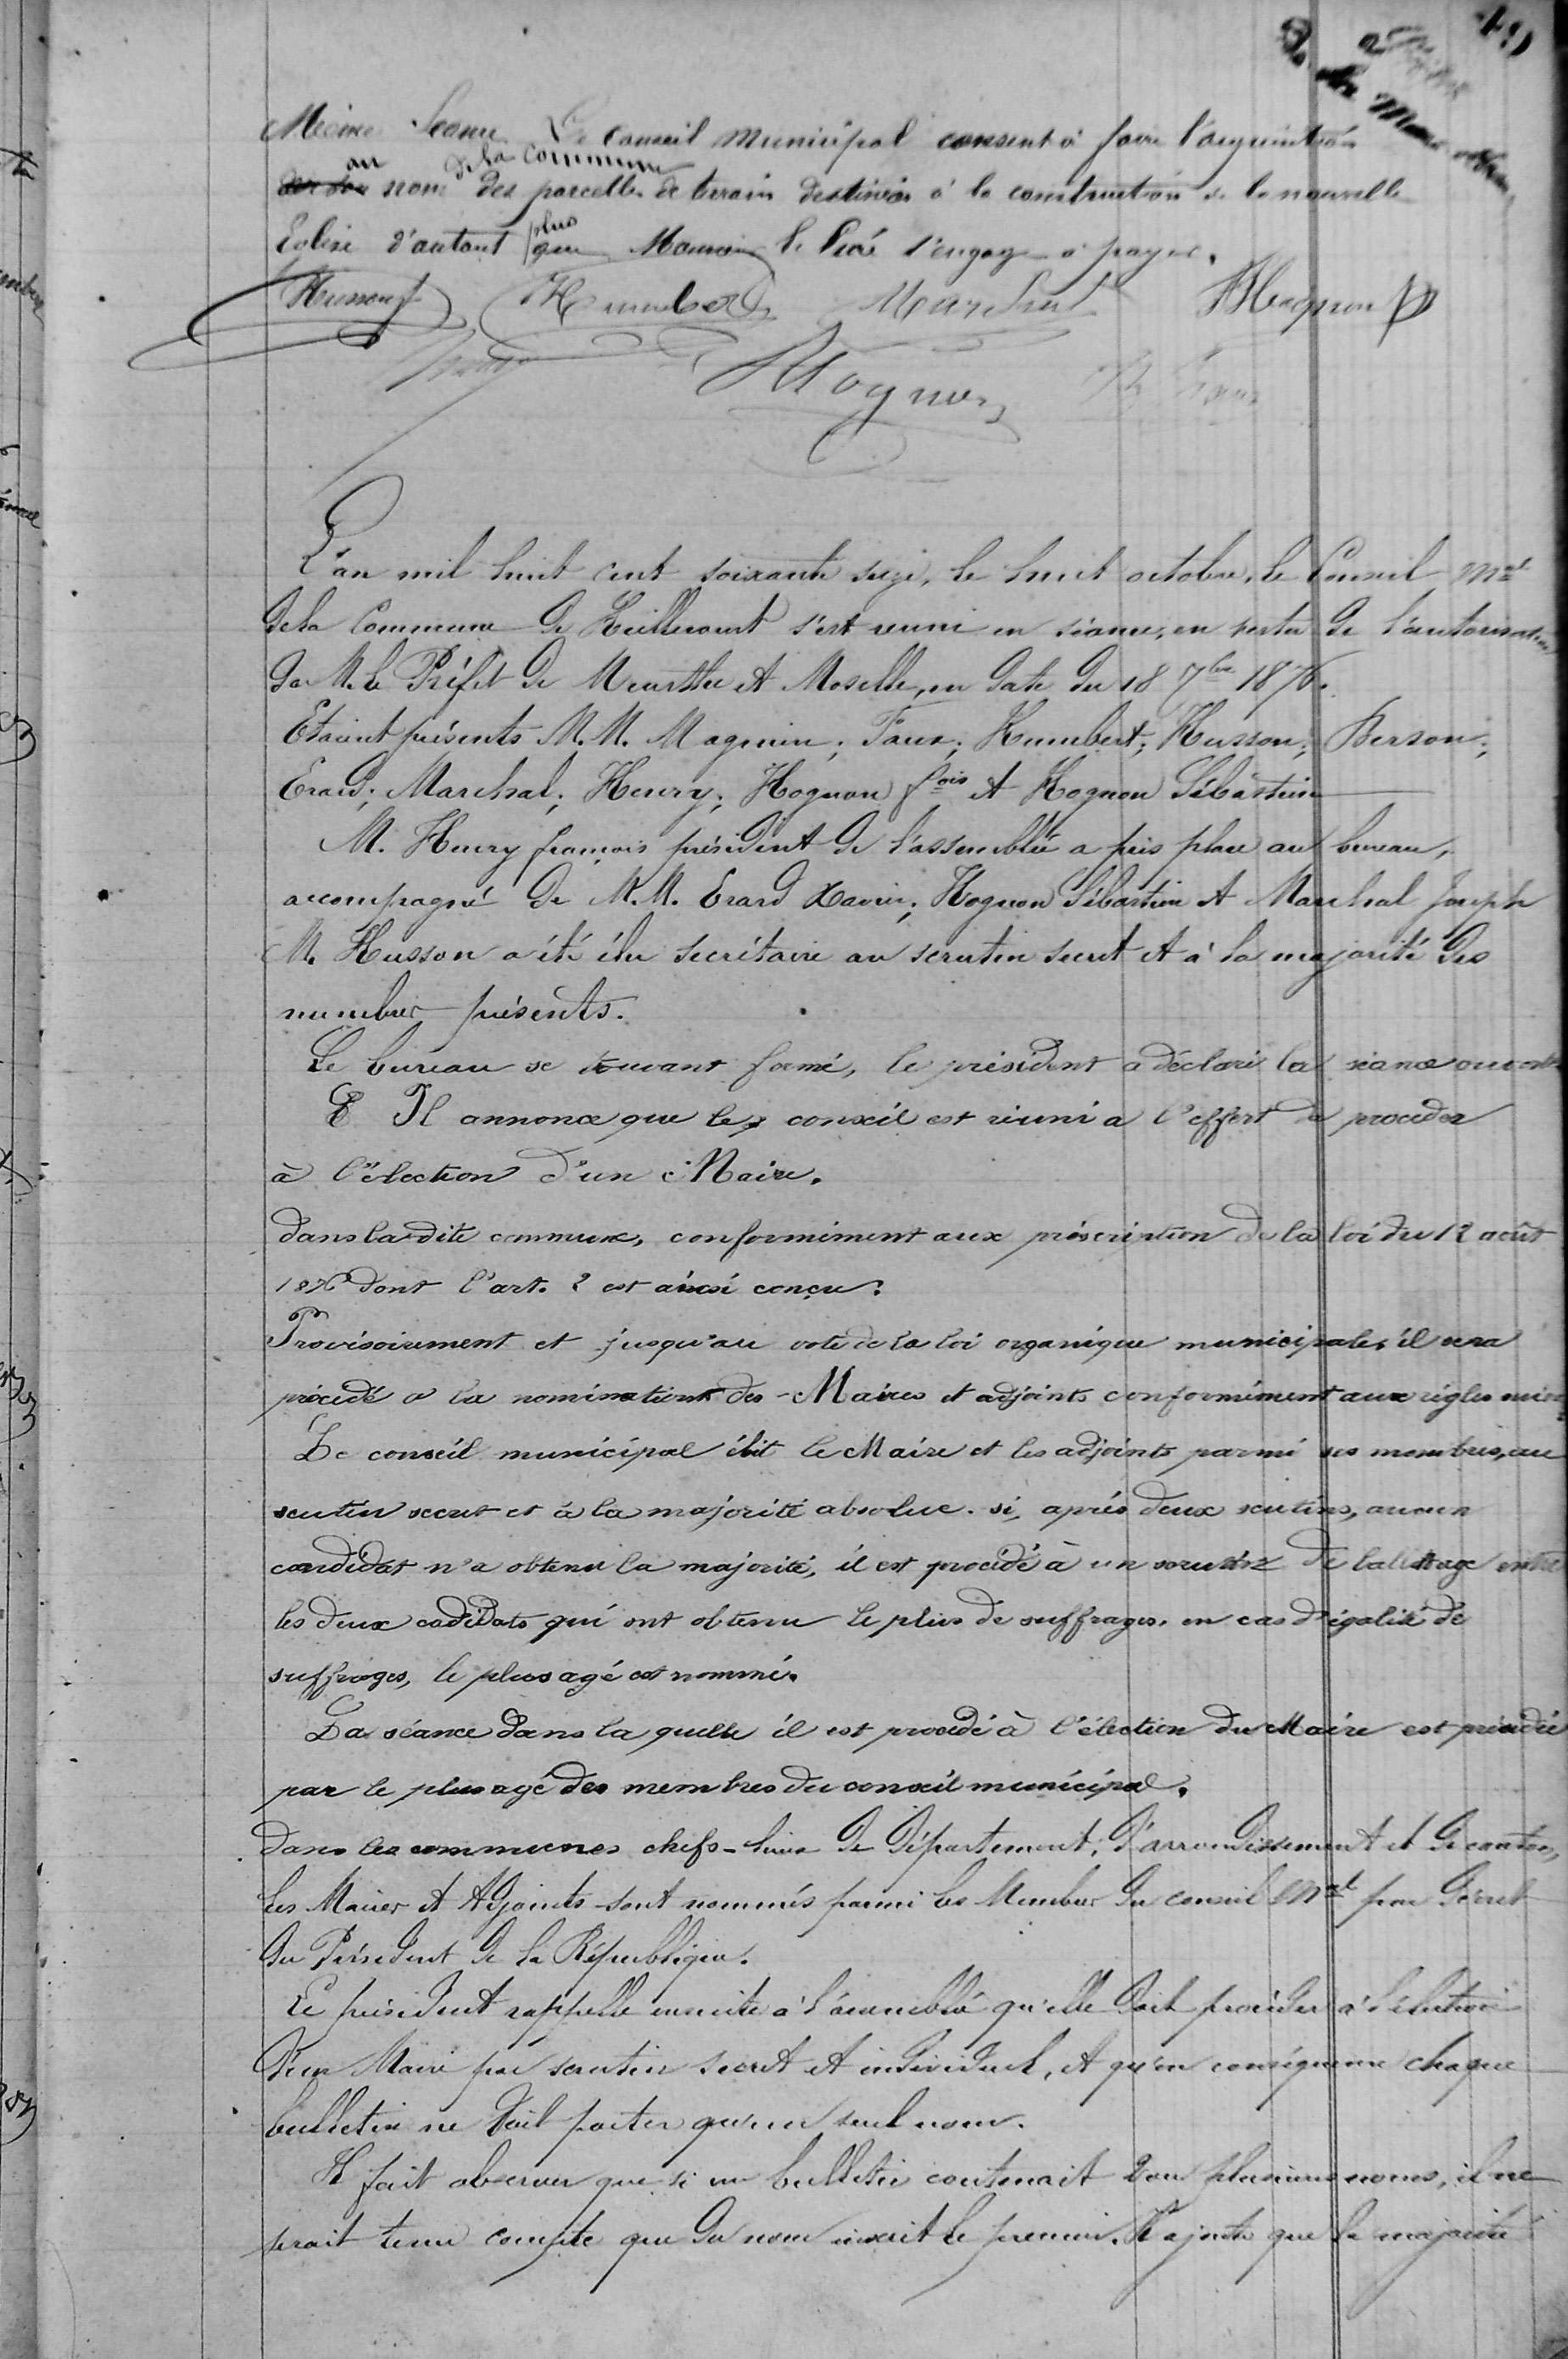 49
Même Séance Le Conseil Municipal consent à faire l'acquisition
au nom de la commune des parcelles de terrain destinées à la construction de la nouvelle
Eglise d'autant plus que Monsieur le Curé s'engage à payer.
Husson Humbert Marchal Hognon
Hognon
L'an mil huit cent soixante seize, le huit octobre, le Conseil Mal
de la Commune de Heillecourt s'est reuni en séance, en vertu de l'autorisation
de M. le Préfet de Meurthe et Moselle, en date du 18 7bre 1876.
Etaient présents M.M. Magnien; Faux; Humbert; Husson; Berson;
Erard; Marchal; Henry; Hognon fois et Hognon Sébastien
M. Henry françois président de l'assemblée a pris place au bureau,
accompagné de M.M. Erard Xavier; Hognon Sébastien et Marchal Joseph
M. Husson a été élu Secrétaire au scrutin secret et à la majorité des
membres présents.
Le bureau se trouvant formé, le président a déclaré la séance ouverte
Il annonce que le conseil est réuni a l'effert de procéder
à l'élection d'un Maire.
dans la dite commune, conformément aux préscription de la loi du 12 août
1876 dont l'art. 2 est ainsi conçu:
Provisoirement et jusqu'au vote de la loi organique municipale, il sera
procédé a la nomination des Maires et adjoints conformément aux règles
Le conseil municipal élit le Maire et les adjoints parmi ses membres, au
scutin secret et à la majorité absolue. si, après deux scutins, aucun
candidat n'a obtenu la majorité, il est procédé à un scrutin de ballottage entre
les deux cadidats qui ont obtenu le plus de suffrages. en cas d'égalité de
suffrages, le plus agé est nommé.
La séance dans la quelle il est procédé à l'élection du Maire est présidée
par le plus agé des membres du conseil municipal.
dans les communes chefs-lieux de Département, d'arrondissement et de canton,
les Maires et Adjoints sont nommés parmi les Membres du conseil Mal par Décret
du Président de la République.
Le président rappelle ensuite à l'assemblée qu'elle doit procéder à l'élection
d'un Maire par scrutin secret et individuel, et qu'en conséquence chaque
bulletin ne doit porter qu'un seul nom.
Il fait observer que si un bulletin contenait 2 ou plusieurs noms, il ne
serait tenu compte que du nom inscrit le premier. Il ajoute que la majorité